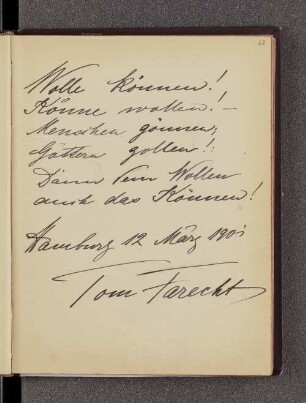 Wolle können!
Könne wollen! –
Menschen gönnen,
Göttern zollen!:
Dann Wollen
auch das Können!
Hamburg 12 März 1901
Tom Farecht